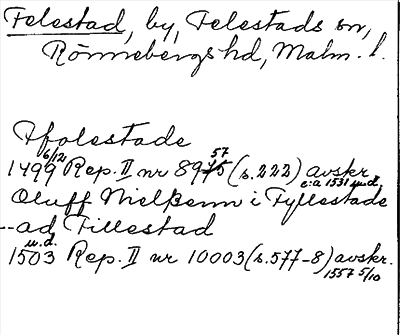 Felestad, by, Felestads sn,
Rönnebergs hd, Malm. l.
Ffalestade
6/12 57
1499 Rep. II nr 8975 (s.222) avskr.
c:a 1531 u.d.
Oluff Nielßenn i Fyllestade
--ad Fillestad
u.d.
1503 Rep. II nr 10003 (s.577-8) avskr.
1557 5/10